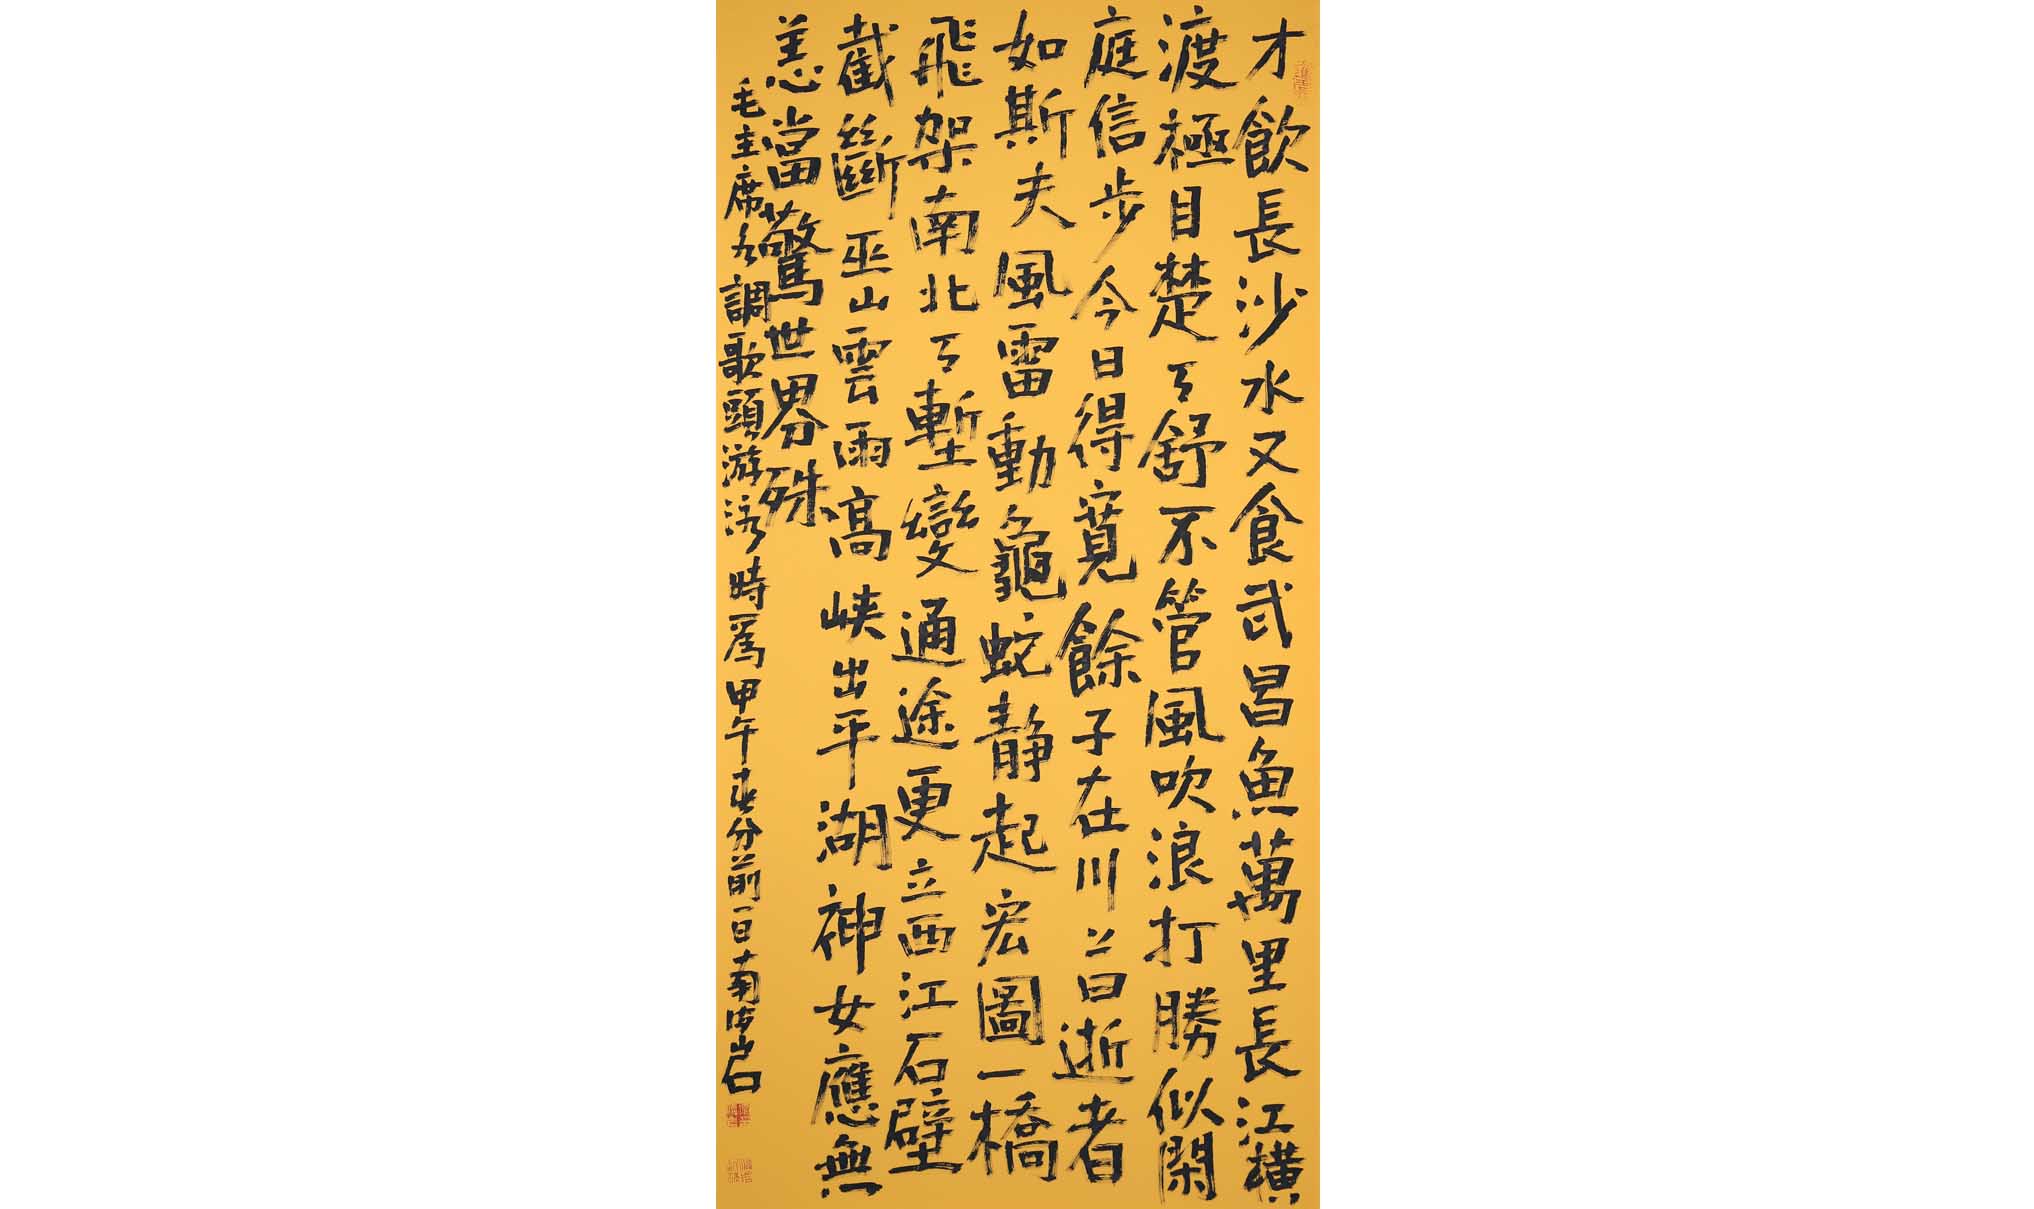 才飲長沙水又食武昌魚萬里長江橫
渡極目楚天舒不管風吹浪打勝似閑
庭信步今日得寬餘子在川上曰逝者
如斯夫風雷動龜蛇靜起宏圖一橋
飛架南北天塹變通途更立西江石壁
截斷巫山雲雨高峽出平湖神女應無
恙當驚世界殊
毛主席水調歌頭游泳時爲甲午春分前一日南海岩